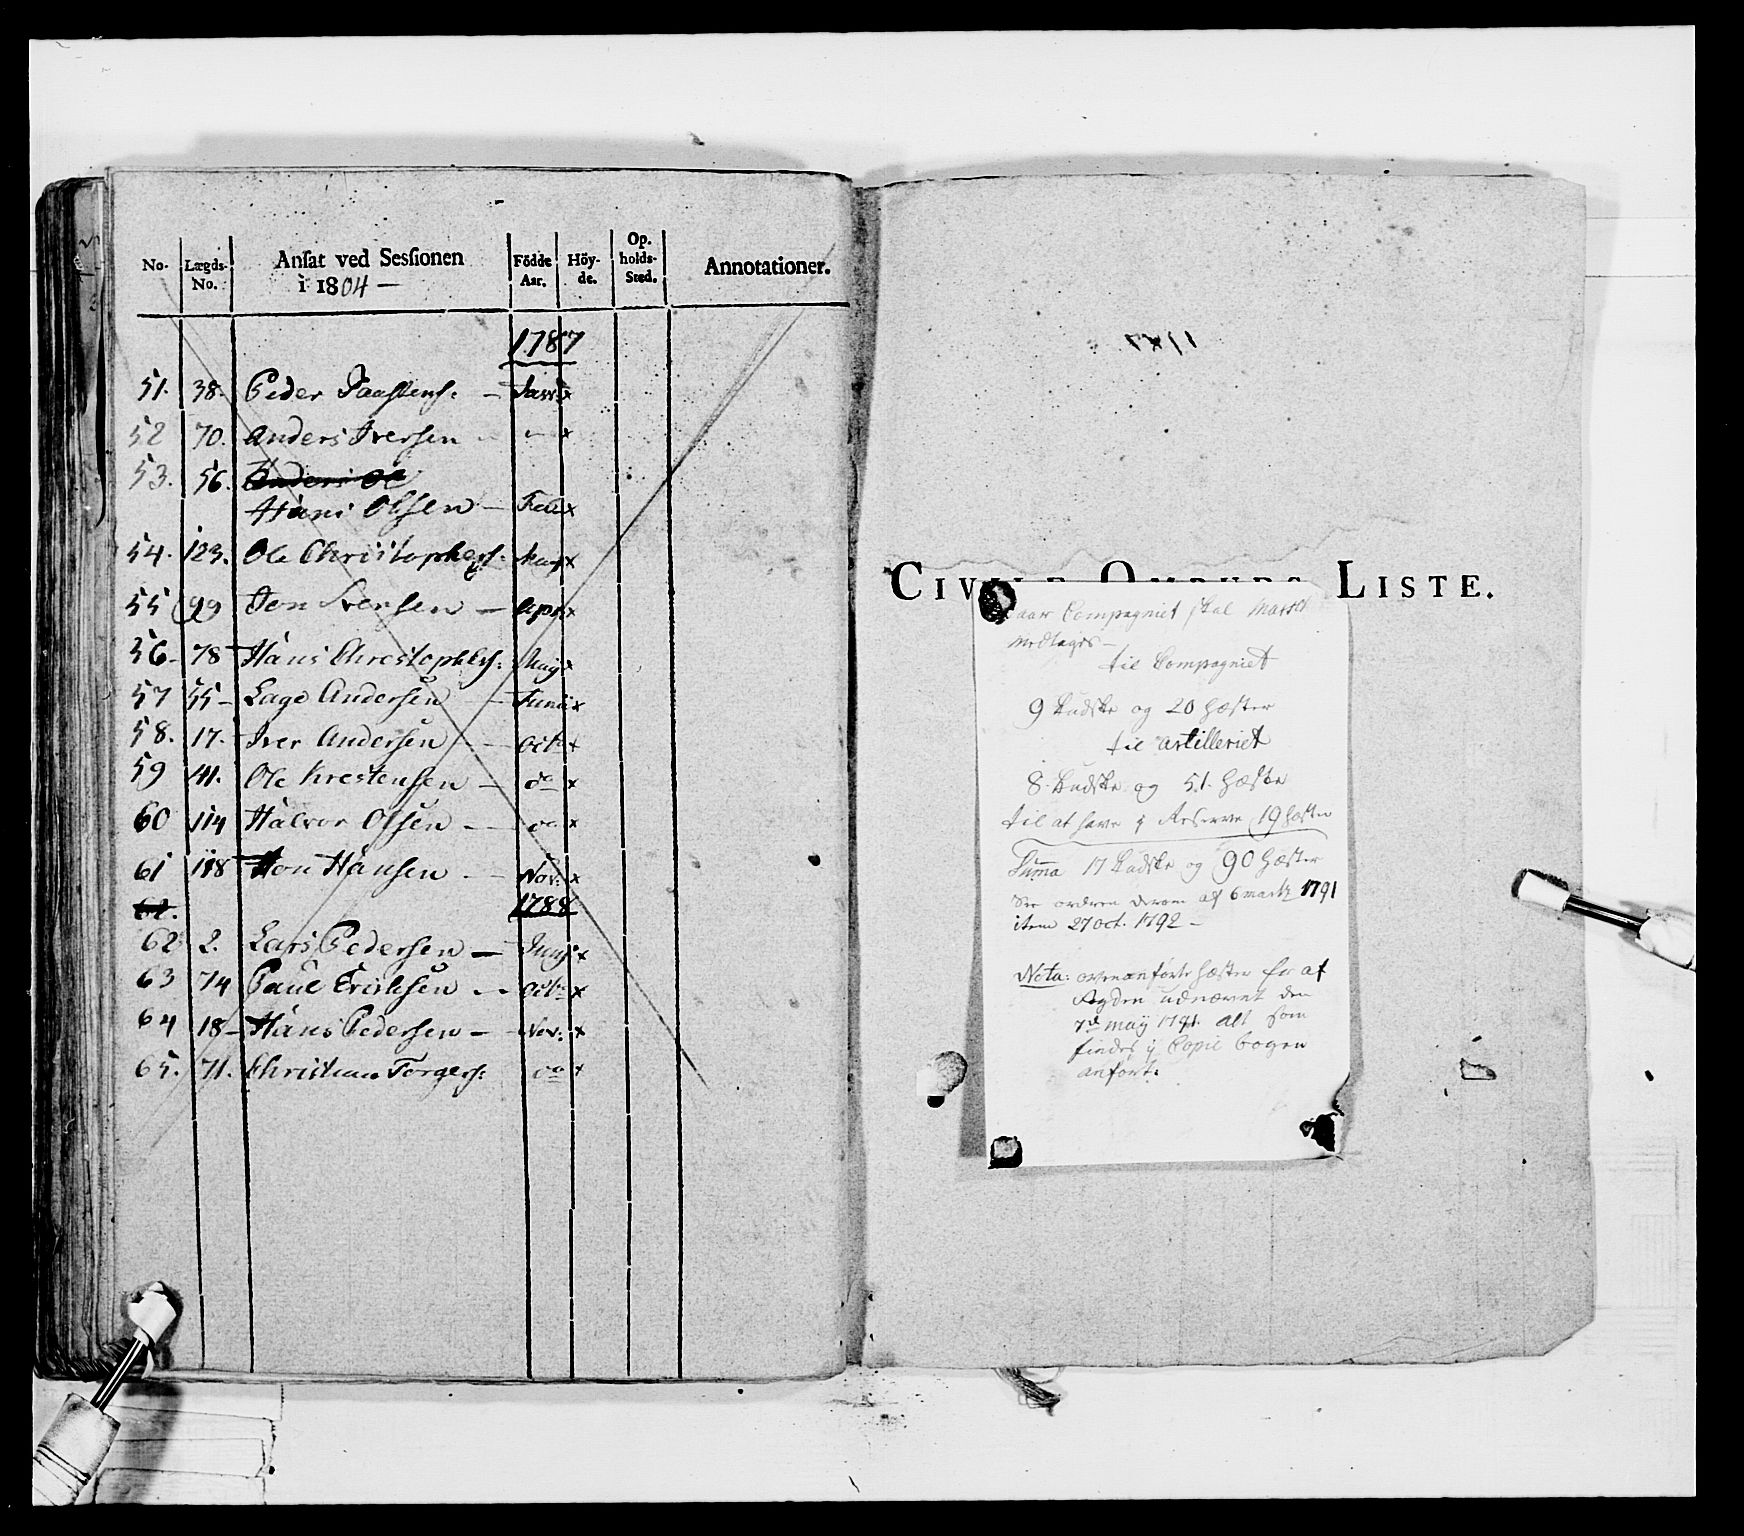 No. Lægds-No. Ansat ved Sessionen i 1804 — Födde Aar. Höy-de. Op-holds-Sted. Annotationer.
1787
51. 38. Peder Taastens: — Janr: x
52 70. Anders Iversen — x
53. 56. Anders Ol
Hans Olsen — Febr x
54. 123. Ole Christophers: Mart x
55 99 Jon Svensen — Apr: x
56. 78 Hans Christophers: Maij x
57 55 — Lage Andersen — Junii x
58. 17. Iver Andersen — Octbr x
59 41. Ole Krestensen — do x
60 114 Halvor Olsen — do x
61 118 Jon Hansen — Nov: x
62. 1788
62 2. Lars Pedersen — Junij x
63 74 Paul Erichsen — Octbr x
64 18 — Hans Pedersen — Nov: x
65. 71. Christian Torgers: do x
Civile Ombuds Liste.
naar Compagniet skal
medtages —
til Compagniet
9 Kudske og 20 Hæster
til Artilleriet
8 Kudske og 51. Hæste
til at have i Reserve 19 Hæster
Suma 17 Kudske og 90 Hæster
See ordren derom af 6 martz 1791
item 27 oct. 1792 —
Nota: ovenanførte Hæster er af
Fogden udnævnt den
7de maij 1791. alt som
findes i Copie bogen
anført.